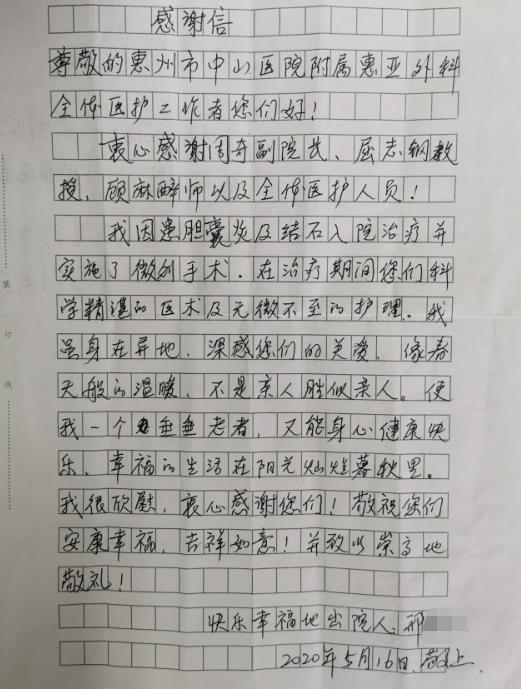 感谢信
尊敬的惠州市中山医院附属惠亚外科
全体医护工作者您们好！
衷心感谢周奇副院长、屈志钢教
授，顾麻醉师以及全体医护人员！
我因患胆囊炎及结石入院治疗并
实施了微创手术．在治疗期间您们科
学精湛的医术及无微不至的护理。我
虽身在异地，深感您们的关爱，像春
天般的温暖，不是亲人胜似亲人。使
我一个垂垂老者，又能身心健康快
乐、幸福的生活在阳光灿烂暮秋里。
我很欣慰，衷心感谢您们！敬祝您们
安康幸福，吉祥如意！并致以崇高地
敬礼！
快乐幸福地出院人：邢
2020年5月16日．敬上
装
订
线